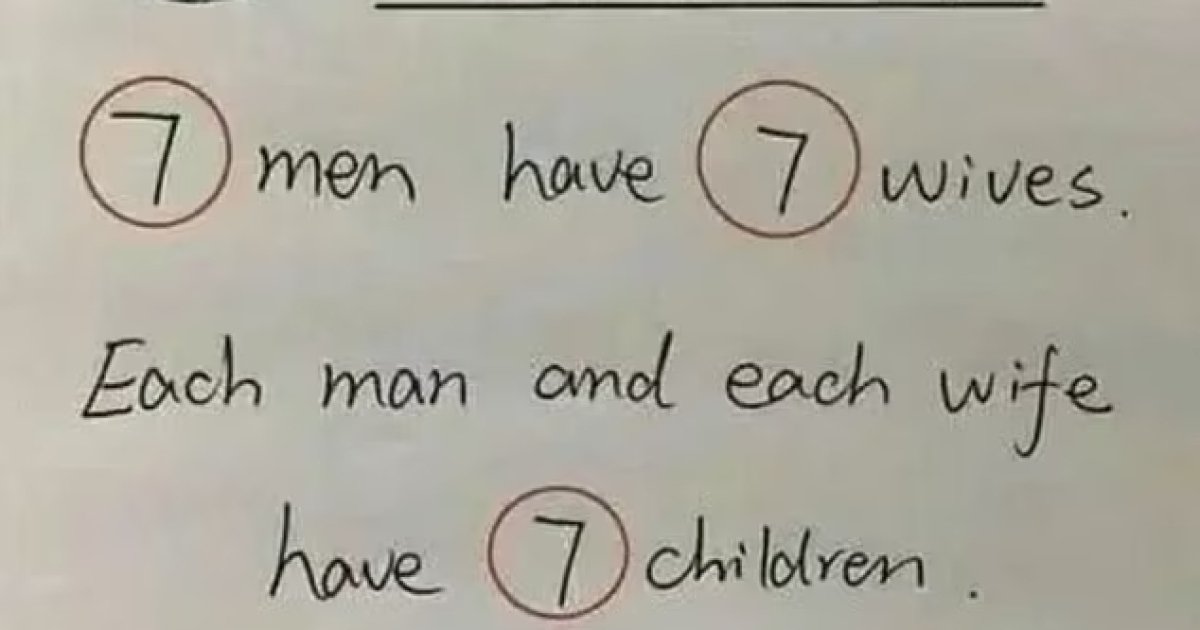 7 men have 7 wives.
Each man and each wife
have 7 children.